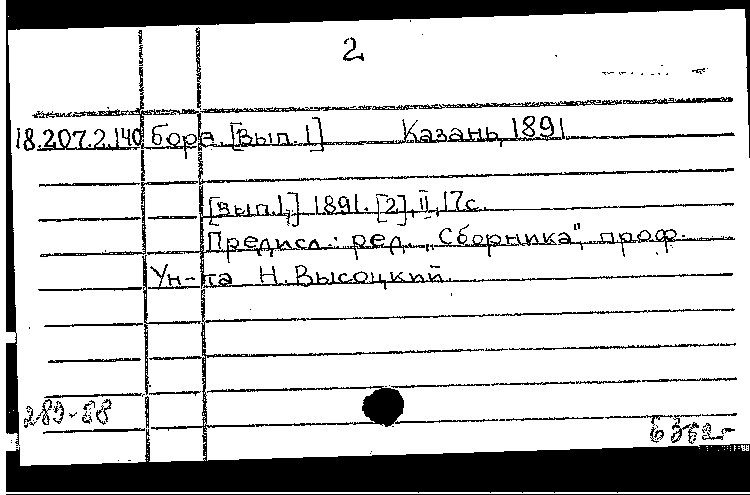 2
18.207.2.140 бора. [Вып. 1] Казань, 1891
[Вып.1,] 1891. [2], II, 17с.
Предисл.: ред. „Сборника", проф.
Ун-та Н. Высоцкий.
289-88